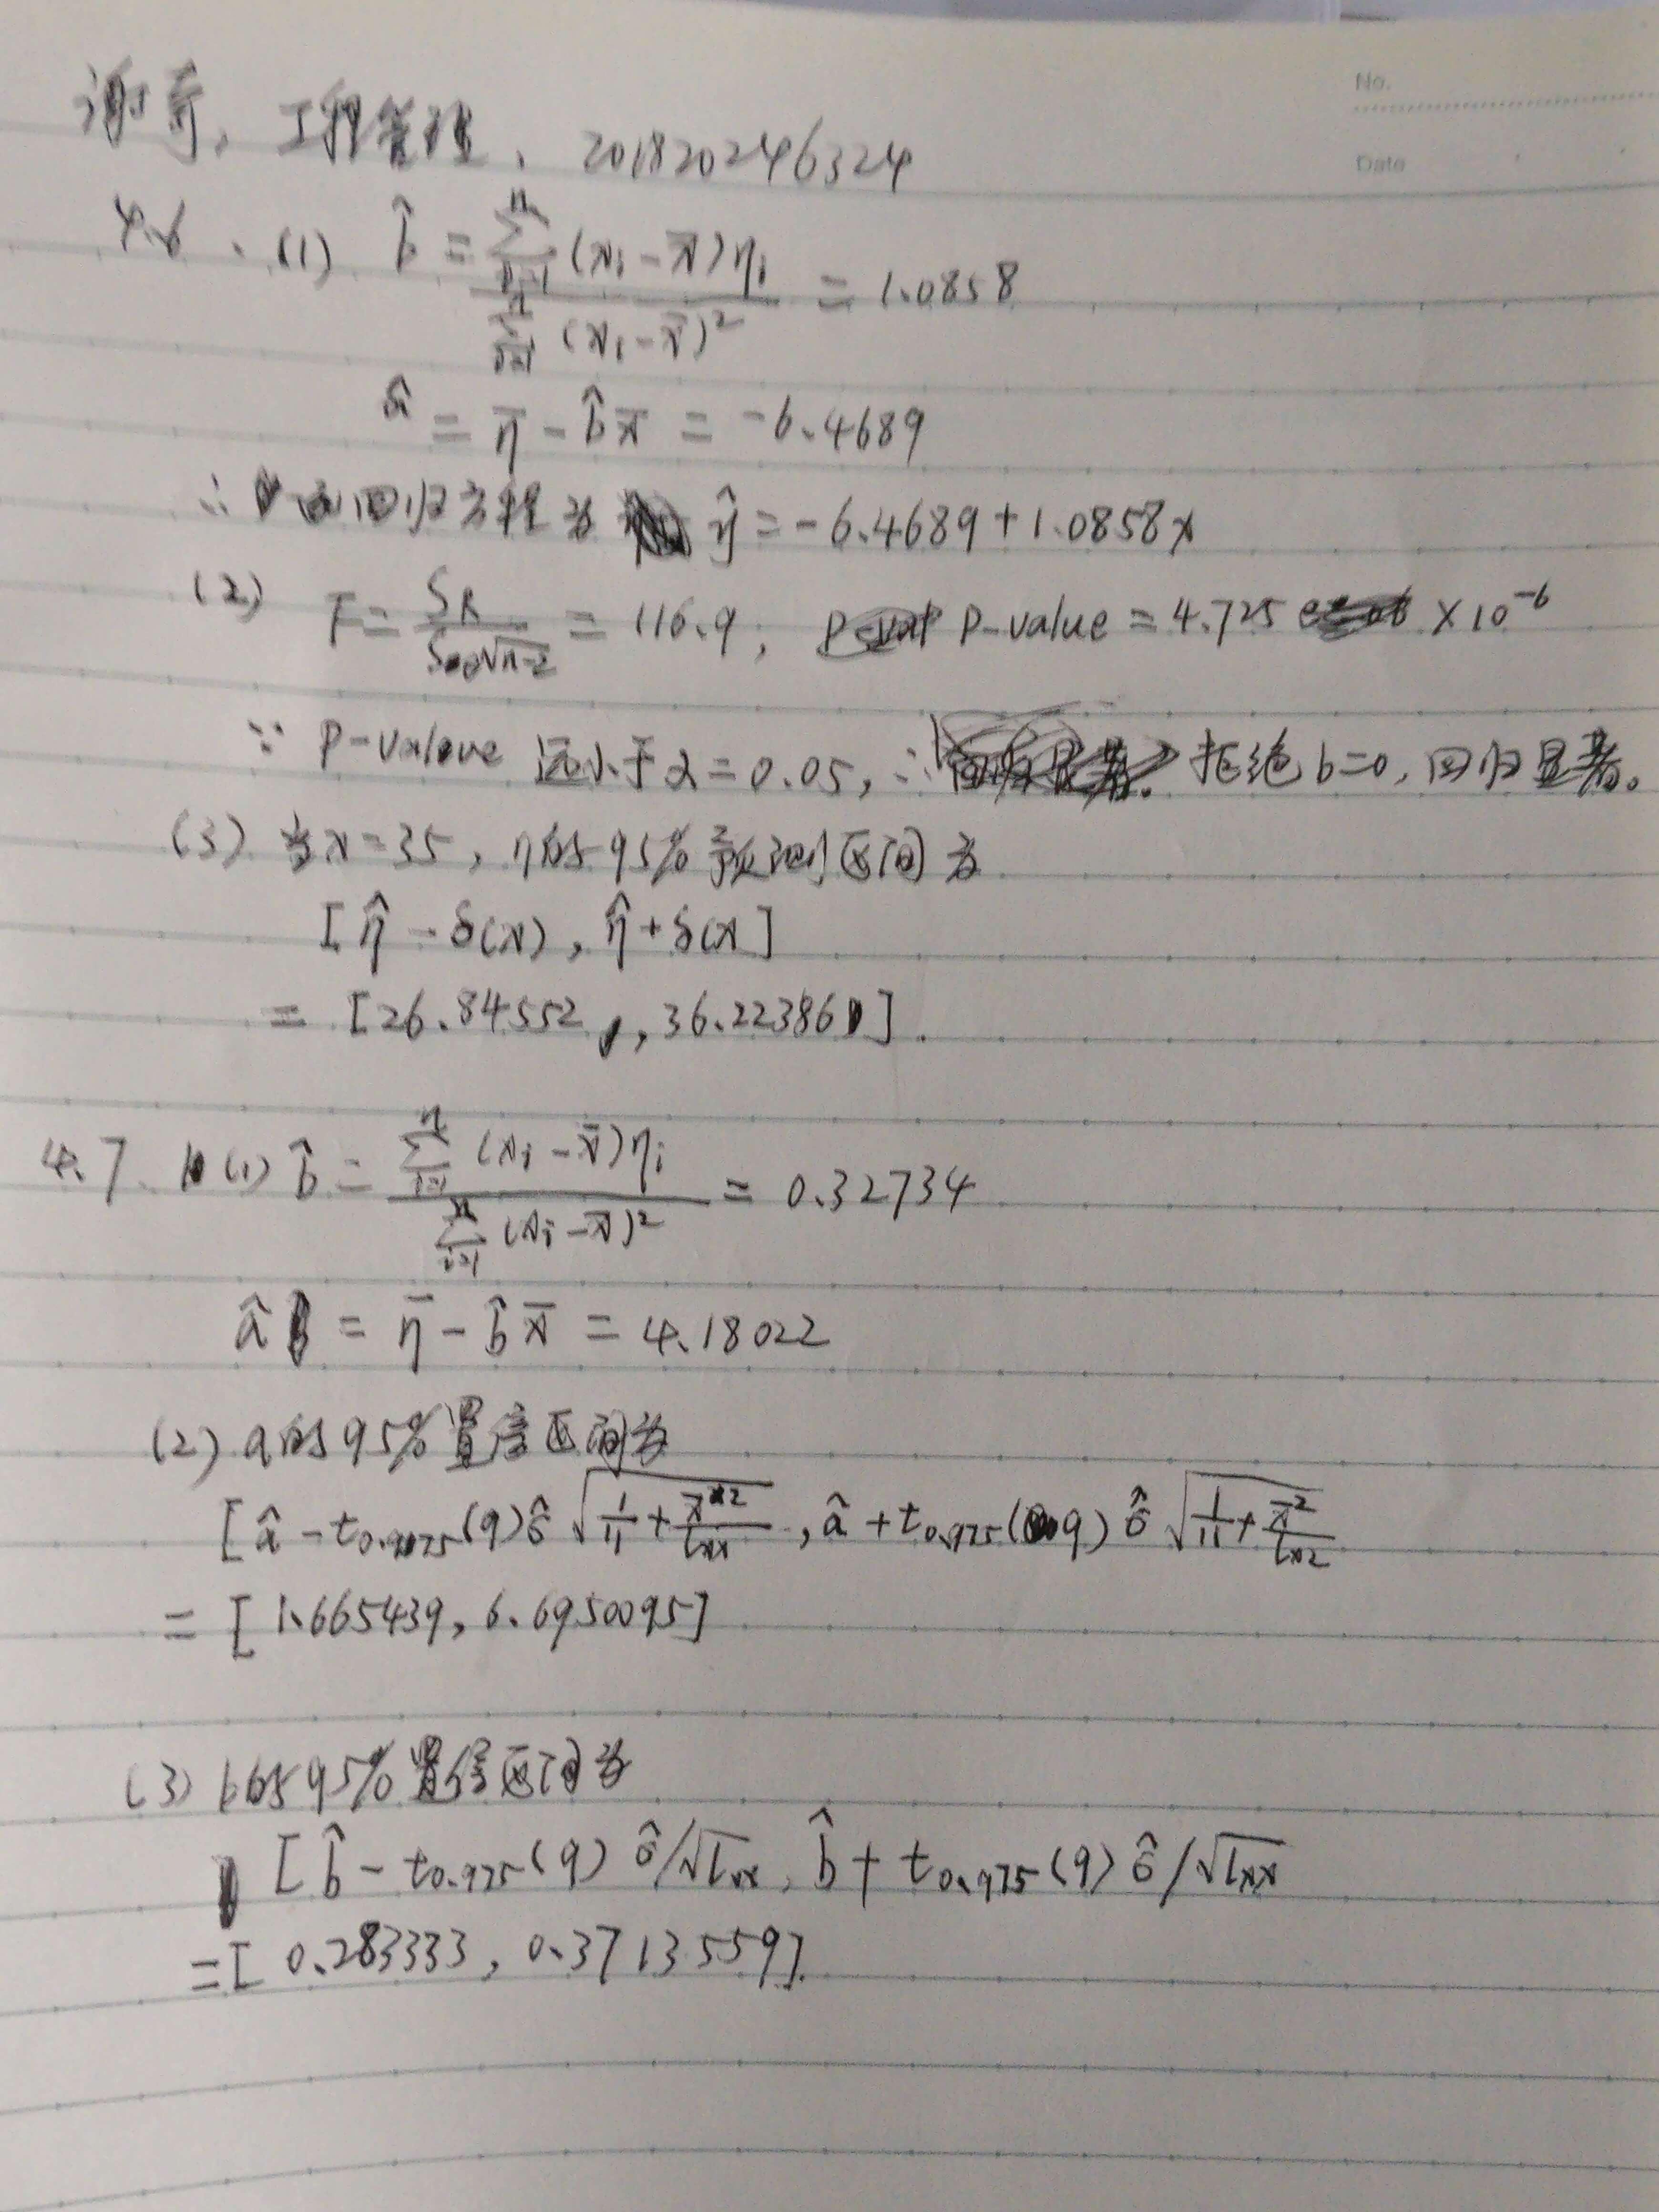 No.
Date
谢奇, 工程管理, 201820246324
4.6. (1) b̂ = ∑ⁿᵢ₌₁(xᵢ - x̄)ηᵢ / ∑ⁿᵢ₌₁(xᵢ - x̄)² = 1.0858
â = η̄ - b̂x̄ = -6.4689
∴ 回归方程为 η̂ = -6.4689 + 1.0858x
(2) F = = 116.9, P-value = 4.725 × 10⁻⁶
∵ P-valave 远小于 α = 0.05, ∴ 拒绝 b=0, 回归显著。
(3) 当x=35, η的95%预测区间为
[η̂ - δ(x), η̂ + δ(x]
= [26.84552, 36.22386].
4.7. (1) b̂ = ∑ⁿᵢ₌₁(xᵢ - x̄)ηᵢ / ∑ⁿᵢ₌₁(xᵢ - x̄)² = 0.32734
â = η̄ - b̂x̄ = 4.18022
(2) a的95%置信区间为
[â - t₀.₉₇₅(9)σ̂√(1/11 + x̄²/lxx), â + t₀.₉₇₅(9)σ̂√(1/11 + x̄²/lx2)
= [1.665439, 6.6950095]
(3) b的95%置信区间为
[b̂ - t₀.₉₇₅(9)σ̂/√lxx, b̂ + t₀.₉₇₅(9)σ̂/√lxx
= [0.283333, 0.3713559].